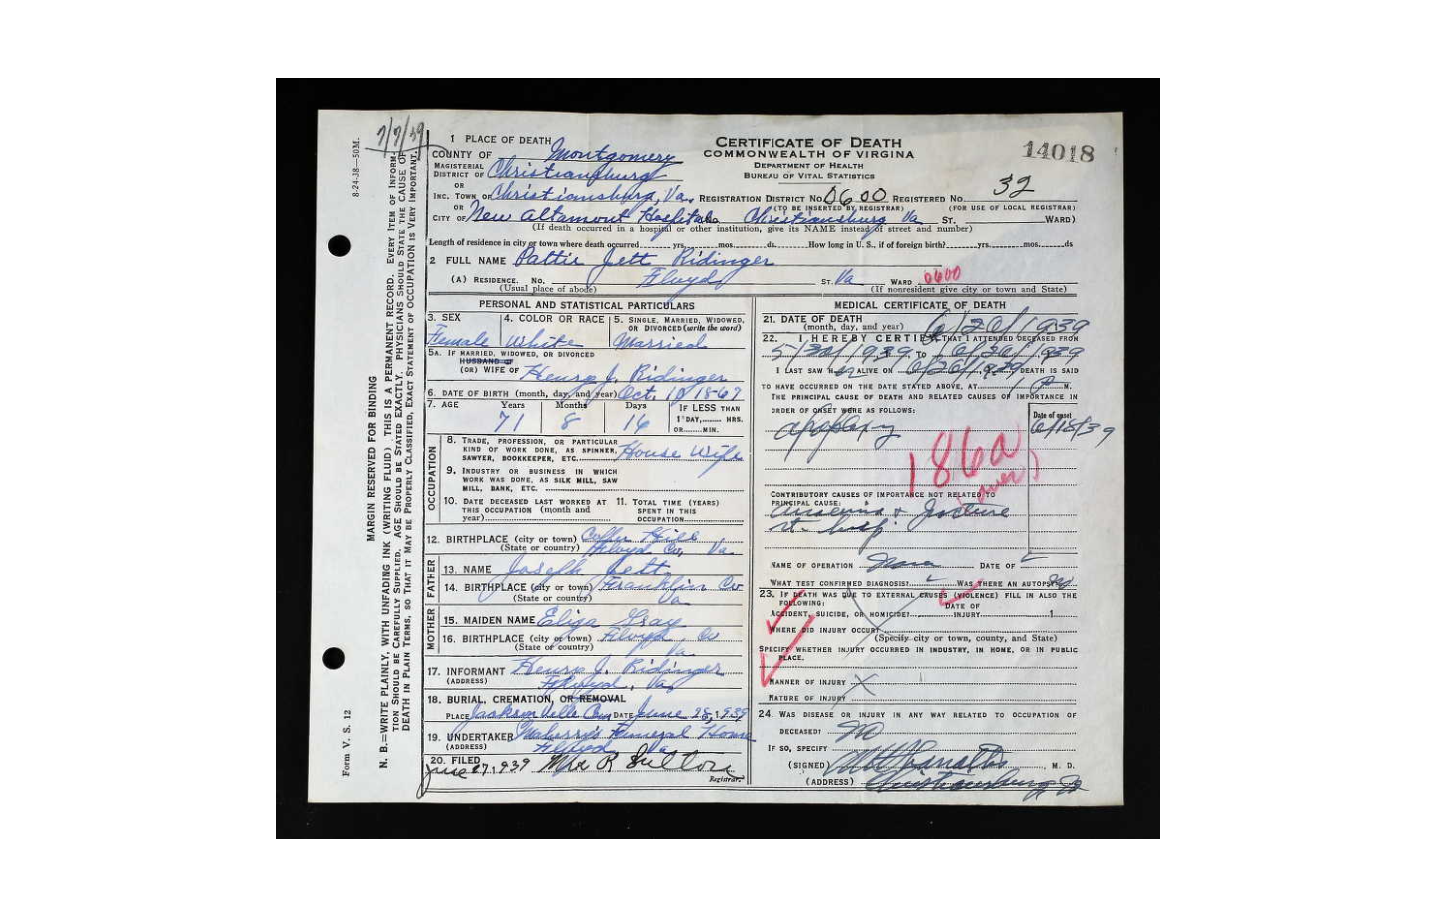 7/7/39
8-24-38—50M.
MARGIN RESERVED FOR BINDING
N. B.—WRITE PLAINLY, WITH UNFADING INK (WRITING FLUID). THIS IS A PERMANENT RECORD. EVERY ITEM OF INFORMA-
TION SHOULD BE CAREFULLY SUPPLIED. AGE SHOULD BE STATED EXACTLY. PHYSICIANS SHOULD STATE THE CAUSE OF
DEATH IN PLAIN TERMS, SO THAT IT MAY BE PROPERLY CLASSIFIED. EXACT STATEMENT OF OCCUPATION IS VERY IMPORTANT.
Form V. S. 12
CERTIFICATE OF DEATH
COMMONWEALTH OF VIRGINA
DEPARTMENT OF HEALTH
BUREAU OF VITAL STATISTICS
14018
1 PLACE OF DEATH
COUNTY OF Montgomery
MAGISTERIAL DISTRICT OF Christiansburg
OR
INC. TOWN OF Christiansburg, Va. REGISTRATION DISTRICT NO. 0600 REGISTERED NO. 32
OR (TO BE INSERTED BY REGISTRAR) (FOR USE OF LOCAL REGISTRAR)
CITY OF New Altamont Hospital No. Christiansburg Va ST. WARD)
(If death occurred in a hospital or other institution, give its NAME instead of street and number)
Length of residence in city or town where death occurred yrs. mos. ds. How long in U. S., if of foreign birth? yrs. mos. ds
2 FULL NAME Pattie Jett Ridinger
(A) RESIDENCE. No. Floyd ST. Va WARD 0600
(Usual place of abode) (If nonresident give city or town and State)
PERSONAL AND STATISTICAL PARTICULARS
3. SEX 4. COLOR OR RACE 5. SINGLE, MARRIED, WIDOWED, OR DIVORCED (write the word)
Female White Married
5A. IF MARRIED, WIDOWED, OR DIVORCED
HUSBAND OF
(OR) WIFE OF Henry J. Ridinger
6. DATE OF BIRTH (month, day, and year) Oct. 10 1867
7. AGE Years Months Days IF LESS THAN
71 8 16 1 DAY, HRS.
OR MIN.
OCCUPATION
8. TRADE, PROFESSION, OR PARTICULAR KIND OF WORK DONE, AS SPINNER, SAWYER, BOOKKEEPER, ETC. House Wife
9. INDUSTRY OR BUSINESS IN WHICH WORK WAS DONE, AS SILK MILL, SAW MILL, BANK, ETC.
10. DATE DECEASED LAST WORKED AT THIS OCCUPATION (month and year)
11. TOTAL TIME (YEARS) SPENT IN THIS OCCUPATION
12. BIRTHPLACE (city or town) Hill
(State or country) Floyd Co. Va.
FATHER
13. NAME Joseph Jett
14. BIRTHPLACE (city or town) Franklin Co
(State or country) Va
MOTHER
15. MAIDEN NAME Eliza Gray
16. BIRTHPLACE (city or town) Floyd Co
(State or country) Va
17. INFORMANT Henry J. Ridinger
(ADDRESS) Floyd, Va.
18. BURIAL, CREMATION, OR REMOVAL
PLACE Jacksonville Cem DATE June 28, 1939
19. UNDERTAKER Funeral Home
(ADDRESS) Floyd Va
20. FILED
June 27, 1939 Mrs R Sutton
Registrar.
MEDICAL CERTIFICATE OF DEATH
21. DATE OF DEATH
(month, day, and year) 6/26/1939
22. I HEREBY CERTIFY, THAT I ATTENDED DECEASED FROM
5/30/1939 TO 6/26/1939
I LAST SAW HER ALIVE ON 6/26/1939, DEATH IS SAID
TO HAVE OCCURRED ON THE DATE STATED ABOVE, AT 1 P M.
THE PRINCIPAL CAUSE OF DEATH AND RELATED CAUSES OF IMPORTANCE IN
ORDER OF ONSET WERE AS FOLLOWS: Date of onset
Apoplexy 6/18/39
186a
(over)
CONTRIBUTORY CAUSES OF IMPORTANCE NOT RELATED TO
PRINCIPAL CAUSE:
rt. hip
NAME OF OPERATION None DATE OF
WHAT TEST CONFIRMED DIAGNOSIS? WAS THERE AN AUTOPSY? No
23. IF DEATH WAS DUE TO EXTERNAL CAUSES (VIOLENCE) FILL IN ALSO THE
FOLLOWING: DATE OF
ACCIDENT, SUICIDE, OR HOMICIDE? INJURY 1
WHERE DID INJURY OCCUR?
(Specify city or town, county, and State)
SPECIFY WHETHER INJURY OCCURRED IN INDUSTRY, IN HOME, OR IN PUBLIC
PLACE.
MANNER OF INJURY
NATURE OF INJURY
24 WAS DISEASE OR INJURY IN ANY WAY RELATED TO OCCUPATION OF
DECEASED? No
IF SO, SPECIFY
(SIGNED) M. D.
(ADDRESS) Christiansburg Va